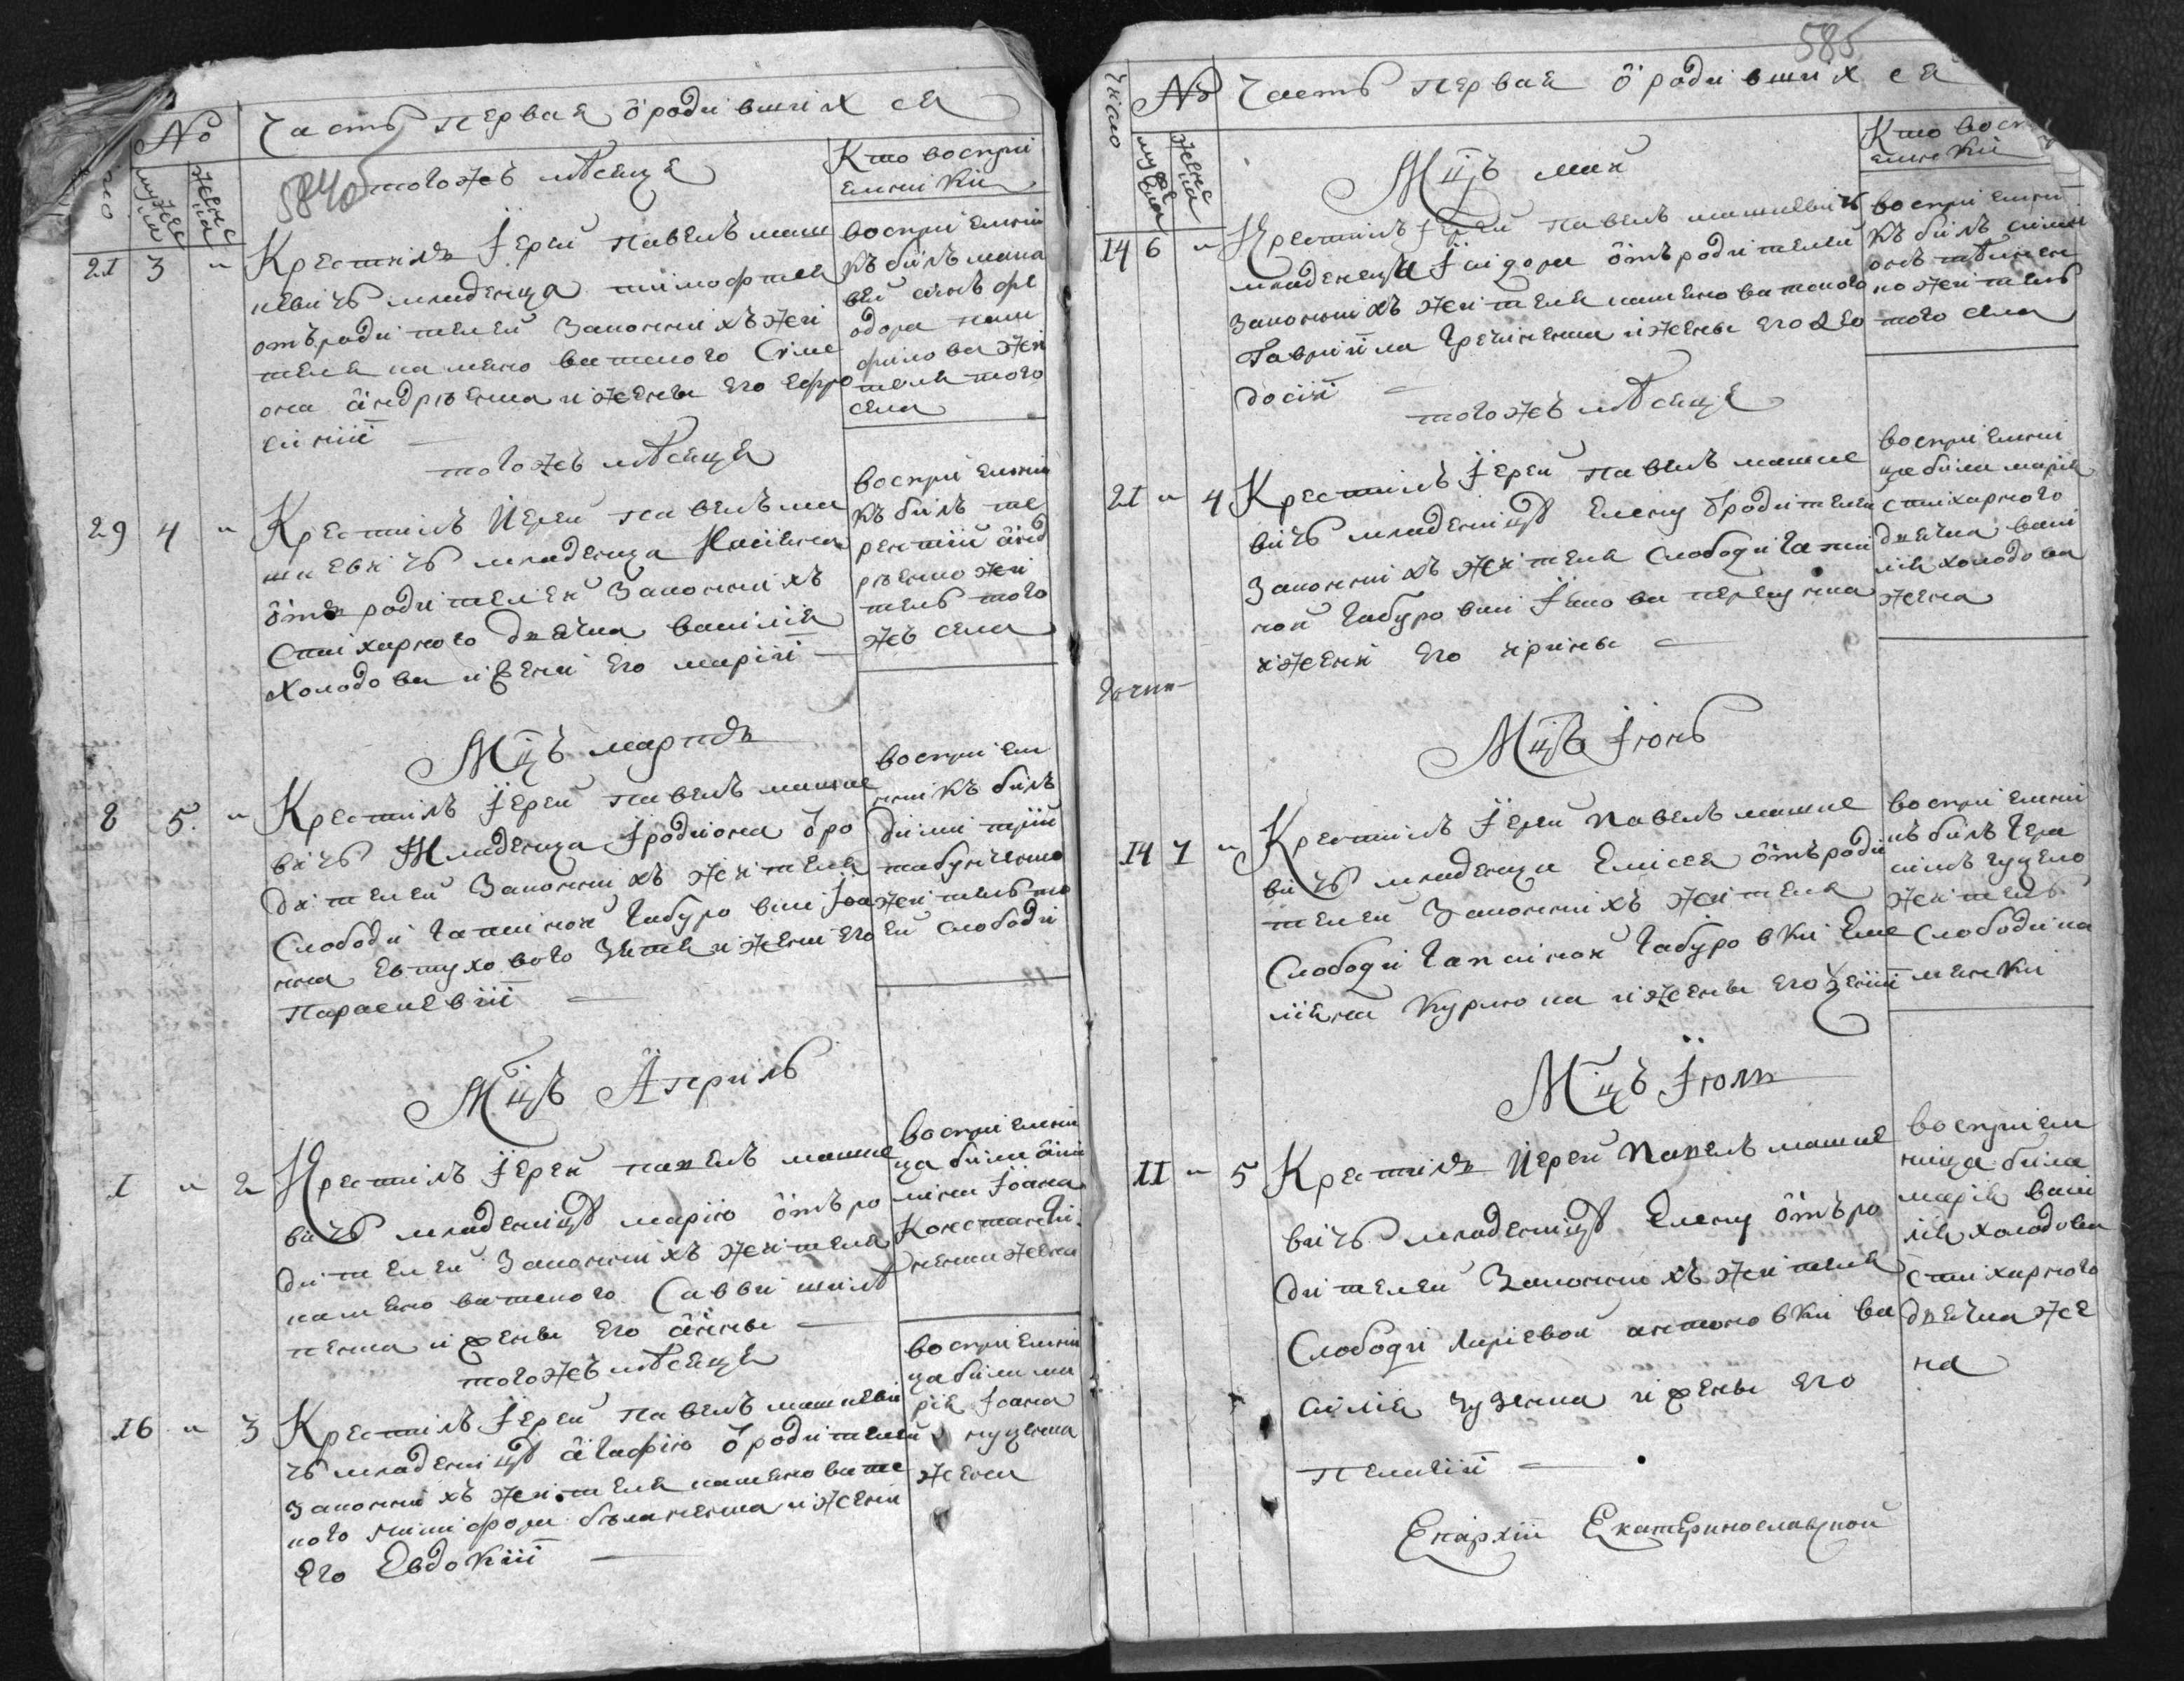 №
Часть первая о родившихся
5840
того жъ мѣсяца
Кто воспри
емники
число
муже
ска
женс
ка
21 3 „
Крестилъ Іерей Павелъ маш
невичъ младенца тимофтея
отъ родителей Законнихъ жи
теля намѣноватеного Симе
она андрѣенка и жены его ефро
сінііи
восприемни
къ билъ мат
вей синъ фе
одора пам
филова жи
теля того
села
того жъ мѣсяца
29 4 „
Крестилъ Иерей Павелъ ма
шневичъ младенца
отъ родителей Законнихъ
Стихарного дячка василія
Холодова и жени его маріи
восприемни
къ билъ те
рентий анд
рѣенко жи
тель того
жъ села
Мцъ мартъ
8 5. „
Крестилъ Іерей Павелъ машне
вичъ Младенца Іродиона о ро
дителей Законнихъ жителя
Слободи Чаплиной Чабуровки Іоа
нна Евтухового Зятя и жени его
Параскевіи
восприем
никъ билъ
димитрий
табунченко
житель то
ей слободи
Мцъ Априль
1 „ 2
Крестилъ Іерей павелъ машне
вичъ младеницѣ марію отъ ро
дителей Законнихъ жителя
наменоватеного Савви шило
пенка и жены его анны
восприемни
ца била аки
лина Іоана
Константи
ненки жена
того жъ мѣсяца
16 „ 3
Крестилъ Іерей Павелъ машневи
чъ младеницѣ агафію о родителей
Законнихъ жителя наменовате
ного никифора бѣланенка и жени
Его Евдокіи
восприемни
ца била ма
рія Іоана
куценка
жена
585
Число
№
Часть первая о родившихся
муже
ска
женс
кай
Мцъ май
Кто восп
емники
14 6 „
Крестилъ Іерей павелъ машневичъ
младенца Ісидора отъ родителей
Законнихъ жителя наменоватеного
Гавриила Гречненка и жены его Фео
досіи
восприемни
къ билъ сими
онъ
но житель
того села
того жъ мѣсяца
21 „ 4
Крестилъ Іерей Павелъ машне
вичъ младеницѣ Елену о родителей
Законнихъ жителя Слободи Чапли
ной Чабуровки Іякова
и жени его ирины
восприемни
ца била марія
стихарного
дячка васи
лія холодова
жена
Мцъ Іюнь
14 7 „
Крестилъ Іерей Павелъ машне
вичъ младенца Елисея отъ роди
телей Законнихъ жителя
Слободи Чаплиной Чабуровки Еме
ліяна Курлюпа и жены его
восприемни
къ билъ Гера
симъ гуцело
житель
Слободи ка
менки
Мцъ Іюль
11 „ 5
Крестилъ Иерей Павелъ машне
вичъ младеницѣ Елену отъ ро
дителей Законнихъ жителя
Слободи Юріевой антоновки ва
силія зузенка и жены его
пелагіи
восприем
ница била
марія васи
лія холодова
стихарного
дячка же
на
Епархіи Екатеринославской